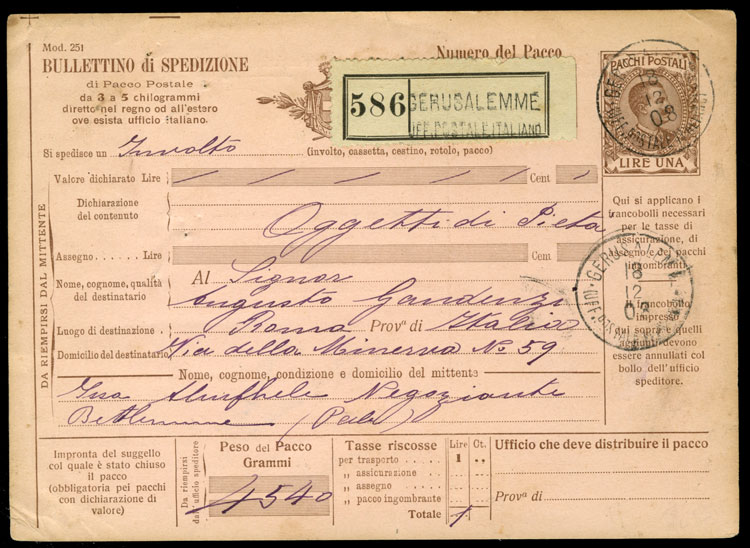 Mod. 251
BULLETTINO di SPEDIZIONE
di Pacco Postale
da 3 a 5 chilogrammi
diretto nel regno od all'estero
ove esista ufficio italiano.
Numero del Pacco
586
GERUSALEMME
UFF. POSTALE ITALIANO
PACCHI POSTALI
LIRE UNA
12
08
Si spedisce un Involto (involto, cassetta, cestino, rotolo, pacco)
Valore dichiarato Lire Cent
Dichiarazione
del contenuto
Oggetti di Pieta
Assegno. . . . . . Lire Cent
Nome, cognome, qualità
del destinatario
Al Signor
Augusto Gaudenzi
Luogo di destinazione Roma Provª di Italia
Domicilio del destinatario Via della Minerva No. 59
Nome, cognome, condizione e domicilio del mittente
Negoziante
Betlemme
DA RIEMPIRSI DAL MITTENTE
Qui si applicano i
francobolli necessari
per le tasse di
assicurazione, di
assegno e dei pacchi
ingombranti.
Il francobollo
impresso
qui sopra e quelli
aggiunti devono
essere annullati col
bollo dell'ufficio
speditore.
GERUSALEMME
18
12
08
Impronta del suggello
col quale è stato chiuso
il pacco
(obbligatoria pei pacchi
con dichiarazione di
valore)
Da riempirsi
dall'ufficio speditore
Peso del Pacco
Grammi
4540
Tasse riscosse Lire Ct.
per trasporto . . . . . 1 ..
„ assicurazione . .
„ assegno . . . . .
„ pacco ingombrante
Totale 1
Ufficio che deve distribuire il pacco
Provª di